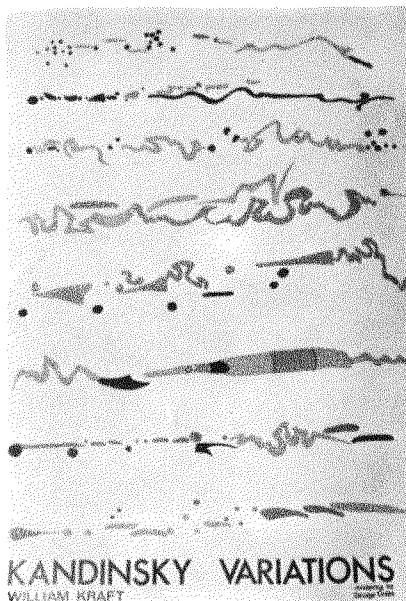 KANDINSKY VARIATIONS
WILLIAM KRAFT